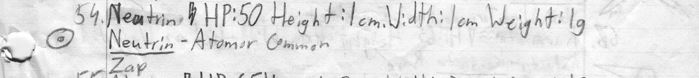 54. Neutrin HP:50 Height:1cm. Width:1cm Weight:1g
Neutrin - Atomar Common
Zap